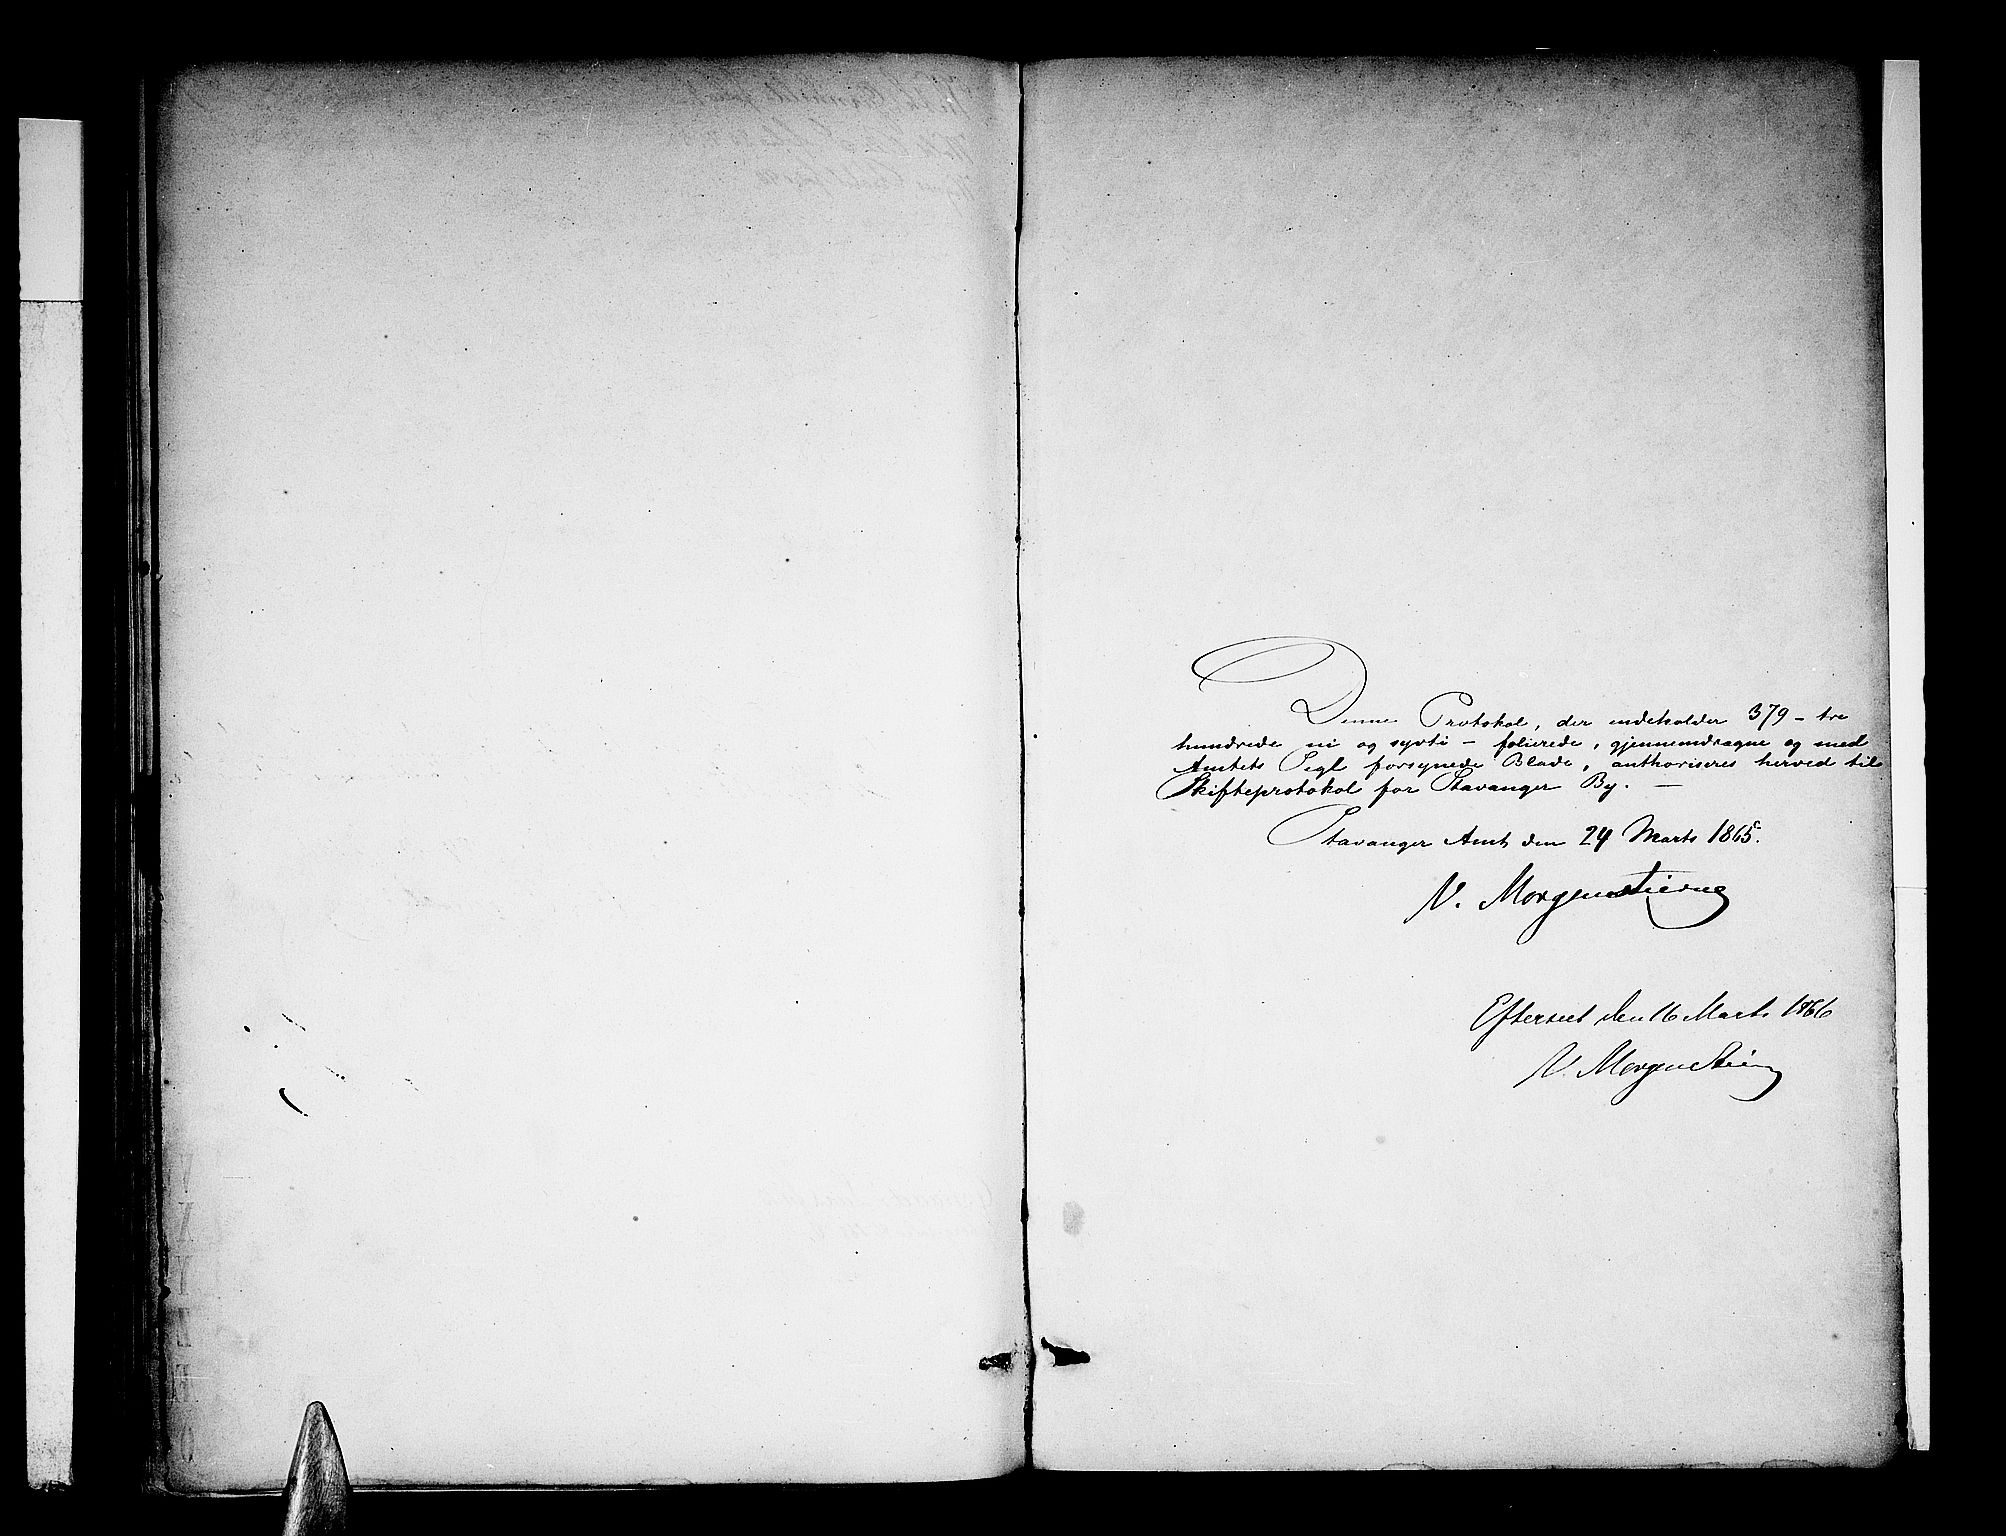 Denne Protokol, der indeholder 379 – tre
hundrede ni og sytti – folierede, gjennemdragne og med
Amtets Segl forsynede Blade, authoriseres herved til
Skifteprotokol for Stavanger By. –
Stavanger Amt den 24 Marts 1865.
V. Morgenstierne
Efterseet den 16 Marts 1866
V. Morgenstierne